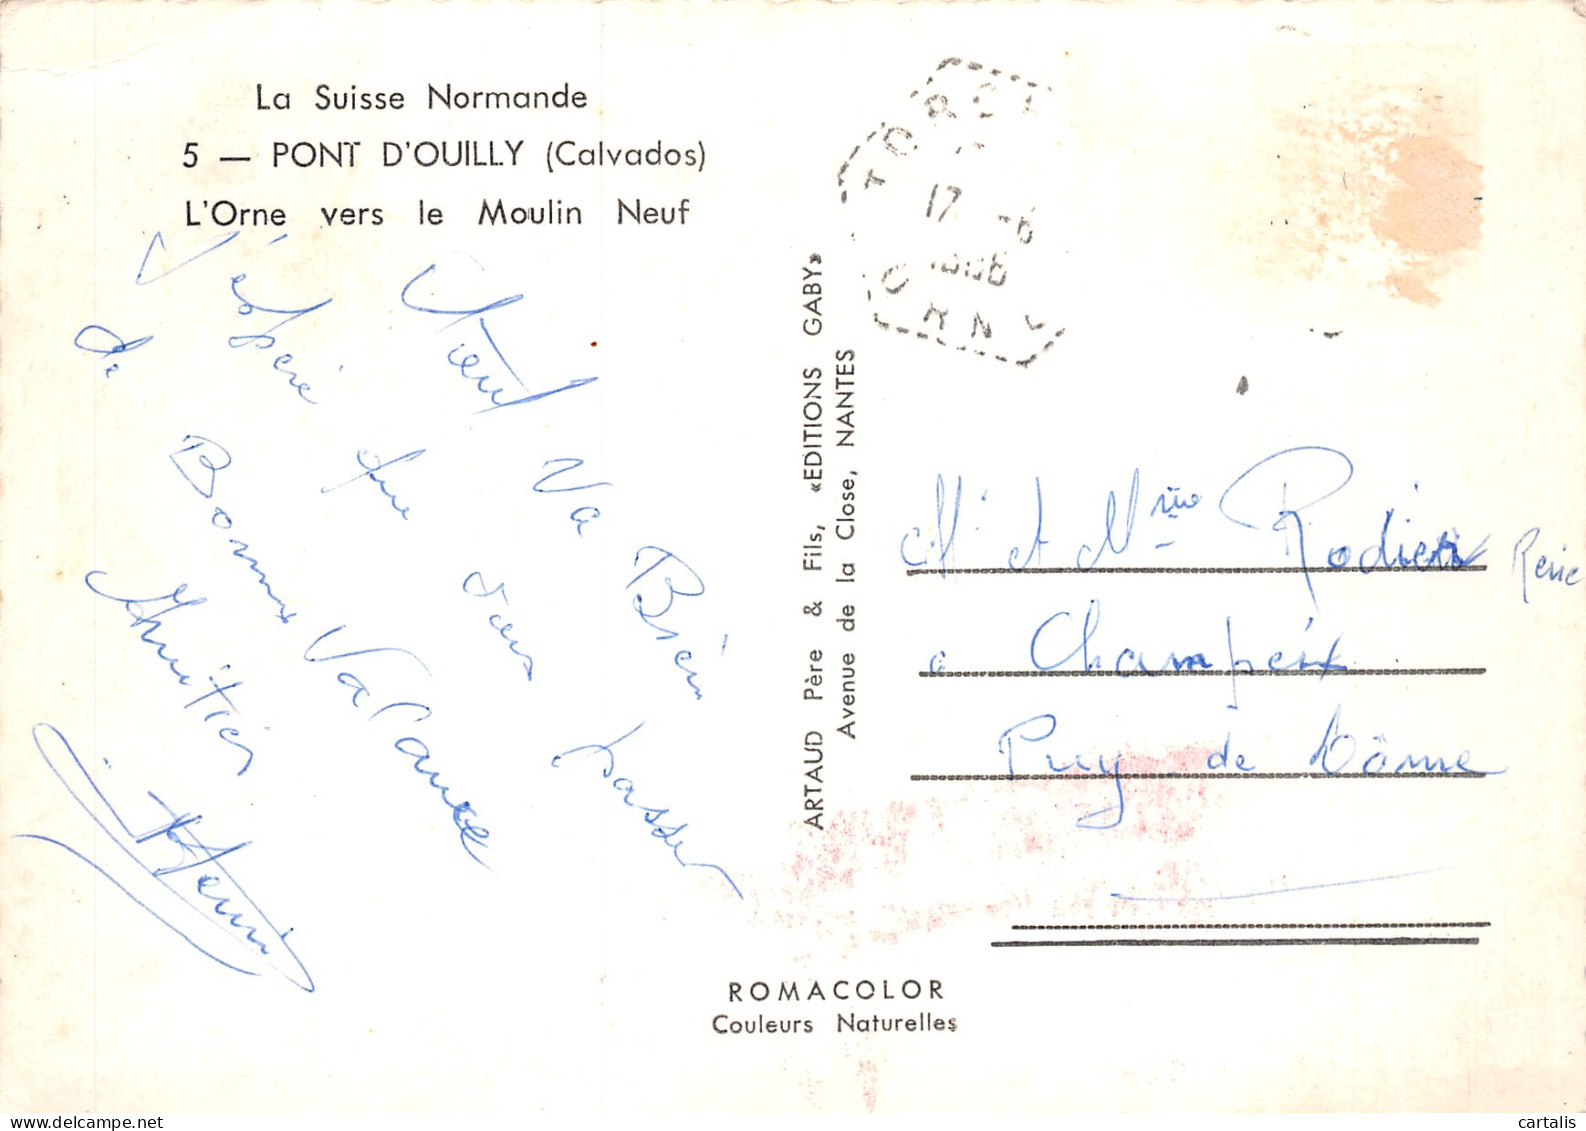 La Suisse Normande
5 — PONT D'OUILLY (Calvados)
L'Orne vers le Moulin Neuf
Tout Va Bien
J'espère que vous passer
de Bonne Vacance
Amitiés
Henri
ARTAUD Père & Fils, «EDITIONS GABY»
Avenue de la Close, NANTES
TORCE
17 -6
ORNE
M et Mme Rodier René
a Champeix
Puy de Dôme
ROMACOLOR
Couleurs Naturelles
cartalis